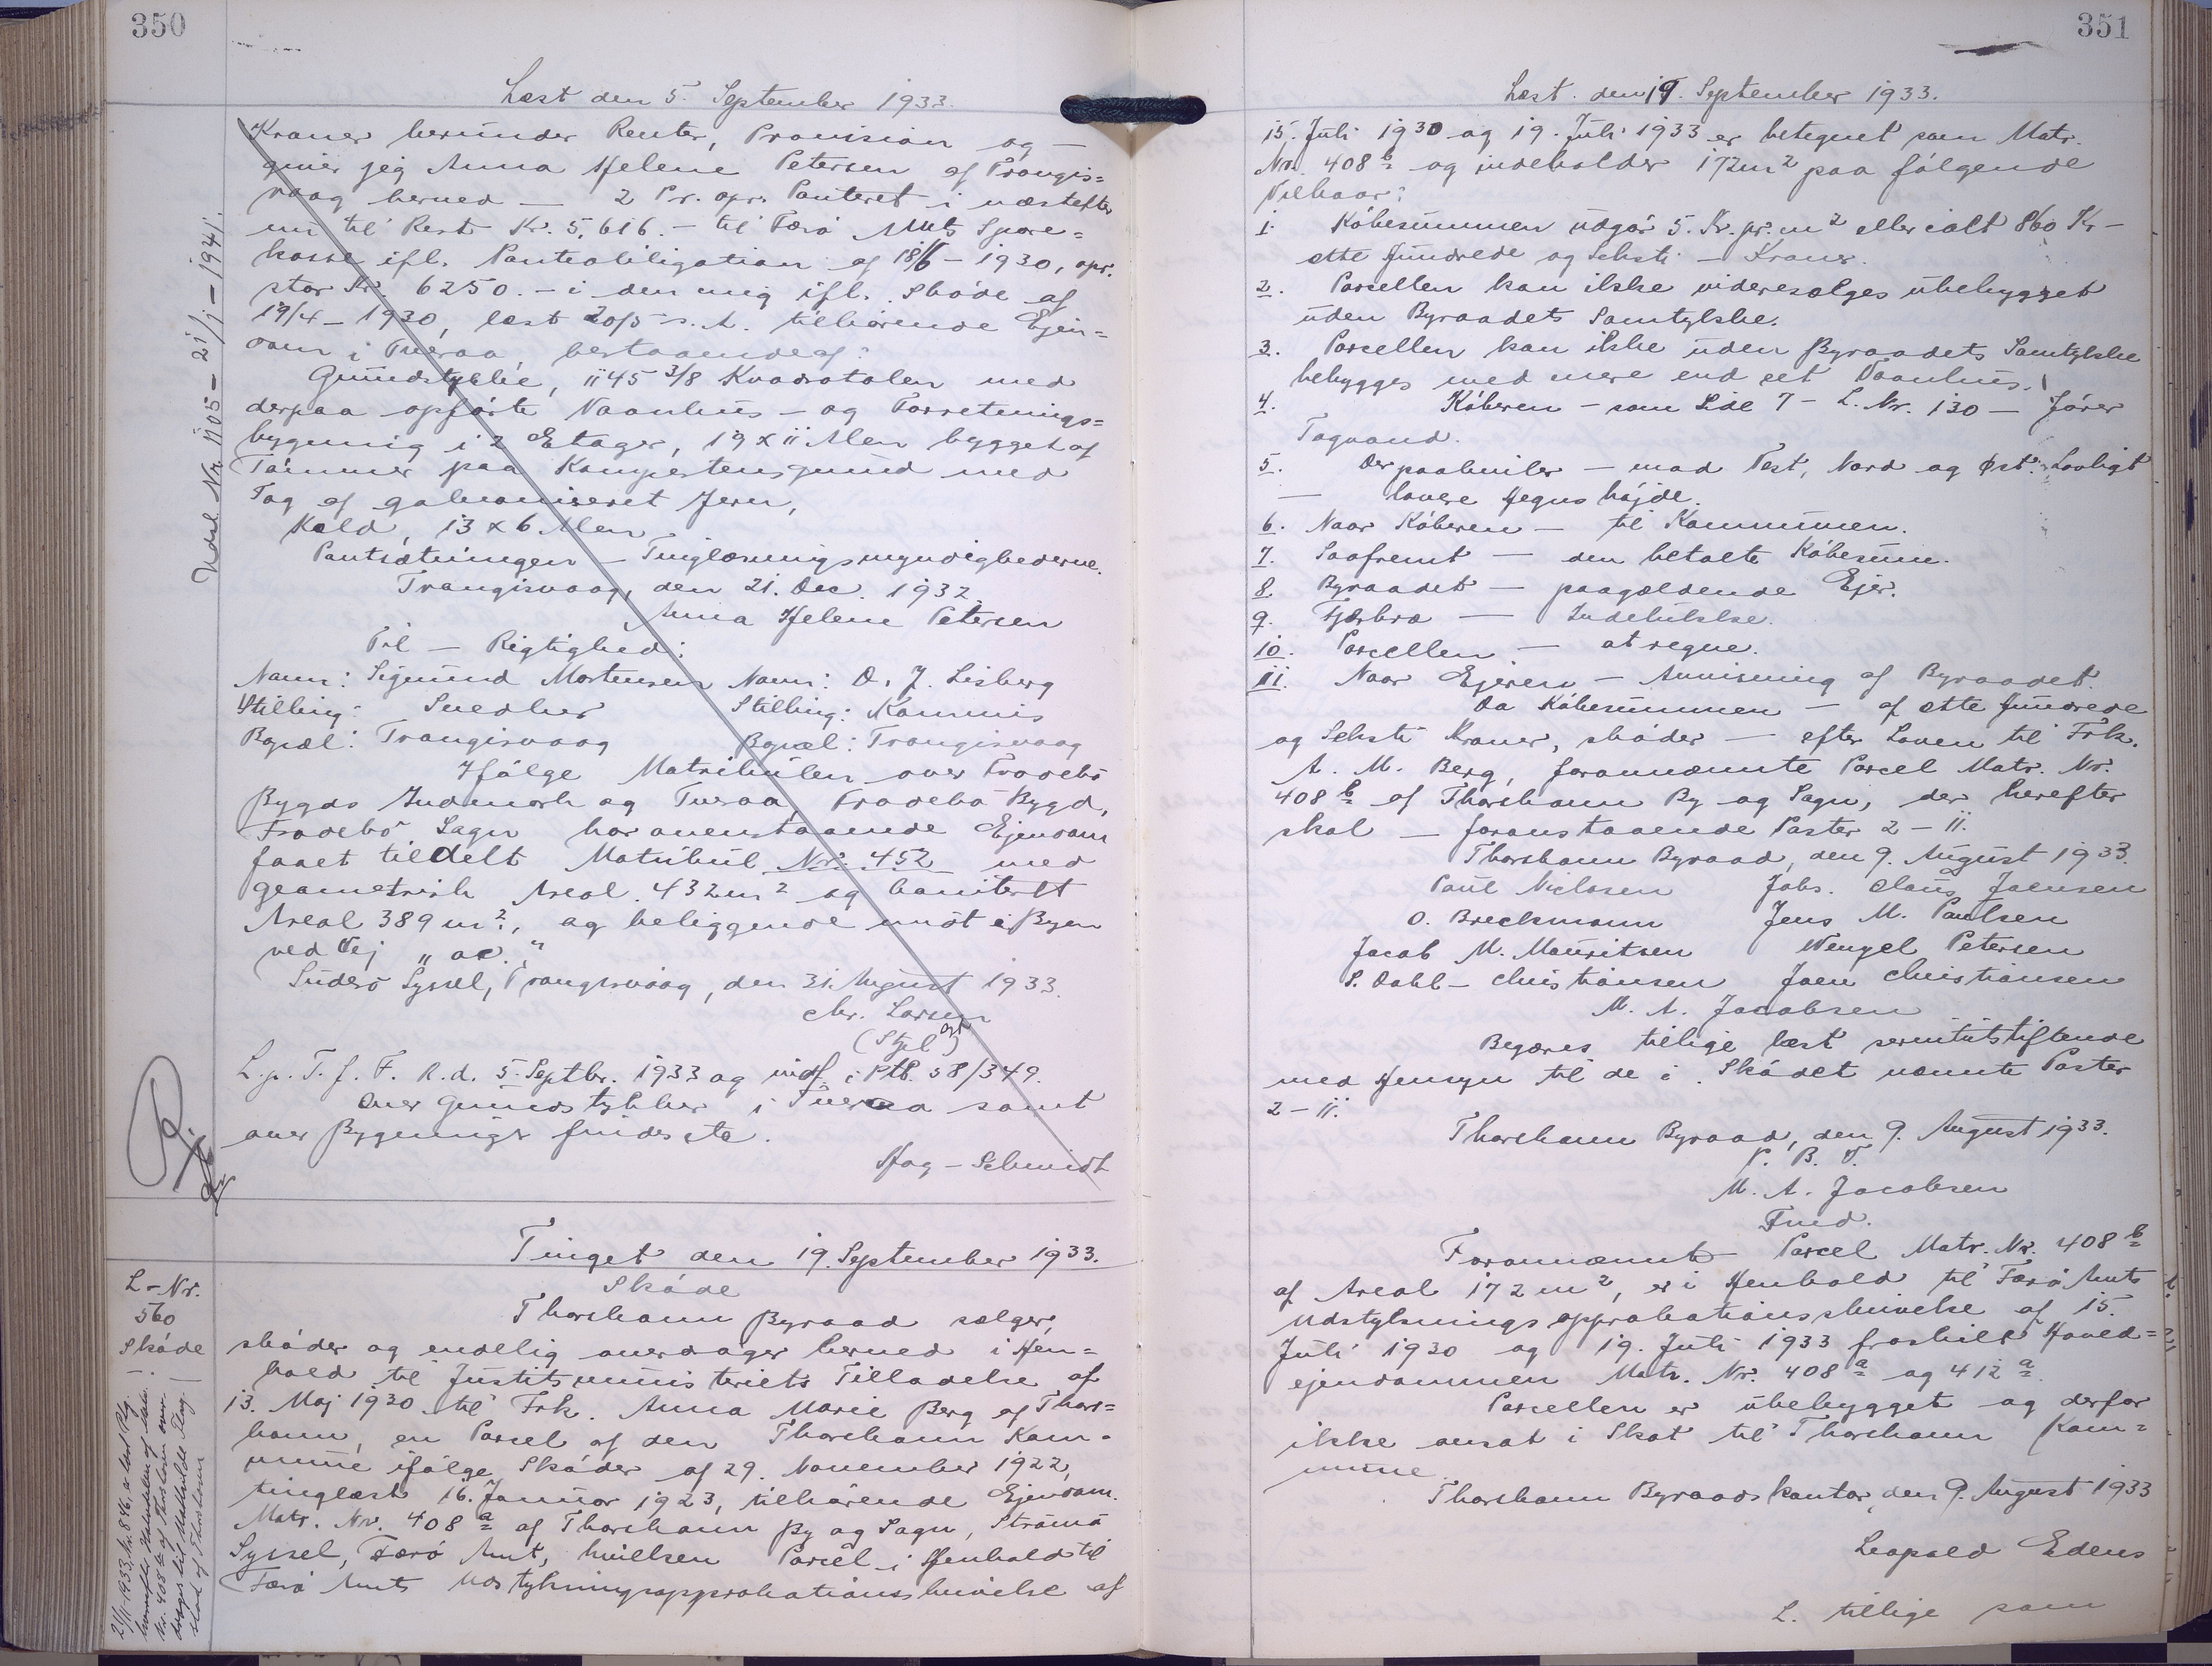 350
Læst den 5. September 1933.
Kroner herunder Renter, Provision og —
giver jeg Anna Helene Petersen af Trangis=
vaag herved — 2 Pr. opr. Panteret i næstefter
en til Rest Kr. 5,616.- til Færø Amts Spare=
kasse ifl. Panteobligation af 18/6 - 1930, opr.
stor Kr. 6250.- i den mig ifl. Skøde af
19/4 - 1930, læst 20/5 s. A. tilhørende Ejen=
dom i Tveraa, bestaaende af:
Grundstykke, 1145 3/8 Kvadratalen med
derpaa opførte Vaanhus - og Forretnings=
bygning i 2 Etager, 19 x 11 Alen bygget af
Tømmer paa Kampestensgrund med
Tag af galvaniseret Jern,
Kold, 13 x 6 Alen
Pantsætningen - Tinglæsningsmyndighederne.
Trangisvaag, den 21. Dec. 1932
Anna Helene Petersen
Til - Rigtighed:
Navn: Sigmund Mortensen Navn: D. J. Lisberg
Stilling: Snedker Stilling: Kommis
Bopæl: Trangisvaag Bopæl: Trangisvaag
Ifølge Matrikulen over Frodebø
Bygds Indmark og Tveraa, Frodebø Bygd,
Frodebø Sogn har ovenstaaende Ejendom
faaet tildelt Matrikul Nr. 452 med
geometrisk Areal 432 m² og boniteret
Areal 389 m²., og beliggende midt i Byen
ved Vej „ac."
Suderø Syssel, Trangisvaag, den 31. August 1933.
Chr. Larsen
L. p. T. f. F. R. d. 5. Septbr. 1933 og indf. i Ptb. 58/349.
Over Grundstykker i Tveraa samt
over Bygninger findes
Hog - Schmidt
Udsl. Nr. 1105 - 21/1 - 1941.
Tinget den 19. September 1933.
L - Nr.
560
Skøde
Skøde
Thorshavn Byraad sælger,
skøder og endelig overdrager herved i Hen=
hold til Justitsministeriets Tilladelse af
13. Maj 1930 til Frk. Anna Marie Berg af Thors=
havn, en Parcel af den Thorshavn Kom=
mune ifølge Skøder af 29. November 1922,
tinglæst 16. Januar 1923, tilhørende Ejendom.
Matr. Nr. 408 a af Thorshavn By og Sogn, Strømø
Syssel, Færø Amt, hvilken Parcel i Henhold til
Færø Amts Udstykningsapprobationsskrivelse af
351
Læst. den 19. September 1933.
15. Juli 1930 og 19. Juli 1933 er betegnet som Matr.
Nr. 408 b og indeholder 172 m² paa følgende
Vilkaar:
1. Købesummen udgør 5. Kr. pr. m² eller ialt 860 Kr -
otte Hundrede og Seksti - Kroner.
2. Parcellen kan ikke videresælges ubebygget
uden Byraadets Samtykke.
3. Parcellen kan ikke uden Byraadets Samtykke
bebygges med mere end eet Vaanhus.
4. Køberen - som Side 7 - L. Nr. 130 - fører
Tagvand.
5. Der paahviler - mod Vest, Nord og Øst. Lovligt
— lavere Hegns højde.
6. Naar Køberen - til Kommunen.
7. Saafremt - den betalte Købesum.
8. Byraadet - paagældende Ejer.
9. Fjerkræ - Indelukke.
10. Parcellen - at regne.
11. Naar Ejeren - Anvisning af Byraadet.
Da Købesummen - af otte Hundrede
og Seksti Kroner, skøder - efter Loven til Frk.
A. M. Berg, forannævnte Parcel Matr. Nr.
408 b af Thorshavn By og Sogn, der herefter
skal - foranstaaende Poster 2 - 11.
Thorshavn Byraad, den 9. August 1933.
Poul Niclasen Johs. Claus Joensen
O. Breckmann Jens M. Paulsen
Jacob M. Mouritsen Wenzel Petersen
S. Dahl - Christiansen Joen Christiansen
M. A. Jacobsen
Begæres tillige læst servitutstiftende
med Hensyn til de i Skødet nævnte Poster
2 - 11.
Thorshavn Byraad, den 9. August 1933.
P. B. V.
M. A. Jacobsen
Fmd.
Forannævnte Parcel Matr. Nr. 408 b
af Areal 172 m², er i Henhold til Færø Amts
Udstyknings approbationsskrivelse af 15.
Juli 1930 og 19. Juli 1933 fraskilt Hoved=
ejendommen Matr. Nr. 408 a og 412 a
Parcellen er ubebygget og derfor
ikke ansat i Skat til Thorshavn Kom=
mune.
Thorshavn Byraadskontor, den 9. August 1933
Leopold Edens
L. tillige som